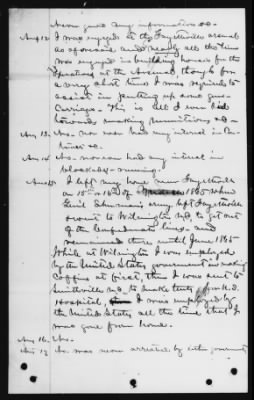 Never gave any information &c.
Ans 12. I was engaged in the Fayetteville arsenal
as aforesaid, and nearly all the time
was engaged in building houses for the
operatives at the Arsenal, though for
a very short time I was required to
assist in putting up some gun
Carriages. This is all I ever did
towards making munitions &c.
Ans 13. No. nor ever had any interest in
&c.
Ans 14. No. nor ever had any interest in
blockade-running.
Ans 15. I left my home near Fayetteville
on 15th or 16th of 1865 when
Genl Sherman's army left Fayetteville
& went to Wilmington N.C. to get out
of the Confederate lines and
remained there until June 1865
While at Wilmington I was employed
by the United States government in making
Coffins at first, then I was sent to
Smithville N.C. to make tents for U.S.
Hospital, I was employed by
the United States all the time that I
was gone from home.
Ans 16. No.
Ans 17. No. was never arrested by either government